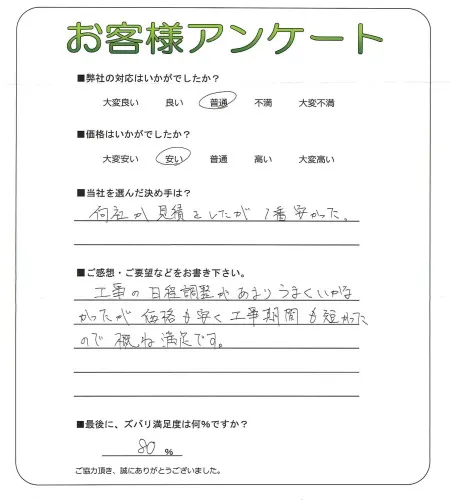 お客様アンケート
■弊社の対応はいかがでしたか？
大変良い 良い 普通 不満 大変不満
■価格はいかがでしたか？
大変安い 安い 普通 高い 大変高い
■当社を選んだ決め手は？
何社か見積をしたが1番安かった。
■ご感想・ご要望などをお書き下さい。
工事の日程調整があまりうまくいかな
かったが価格も安く工事期間も短かった
ので概ね満足です。
■最後に、ズバリ満足度は何％ですか？
80 ％
ご協力頂き、誠にありがとうございました。